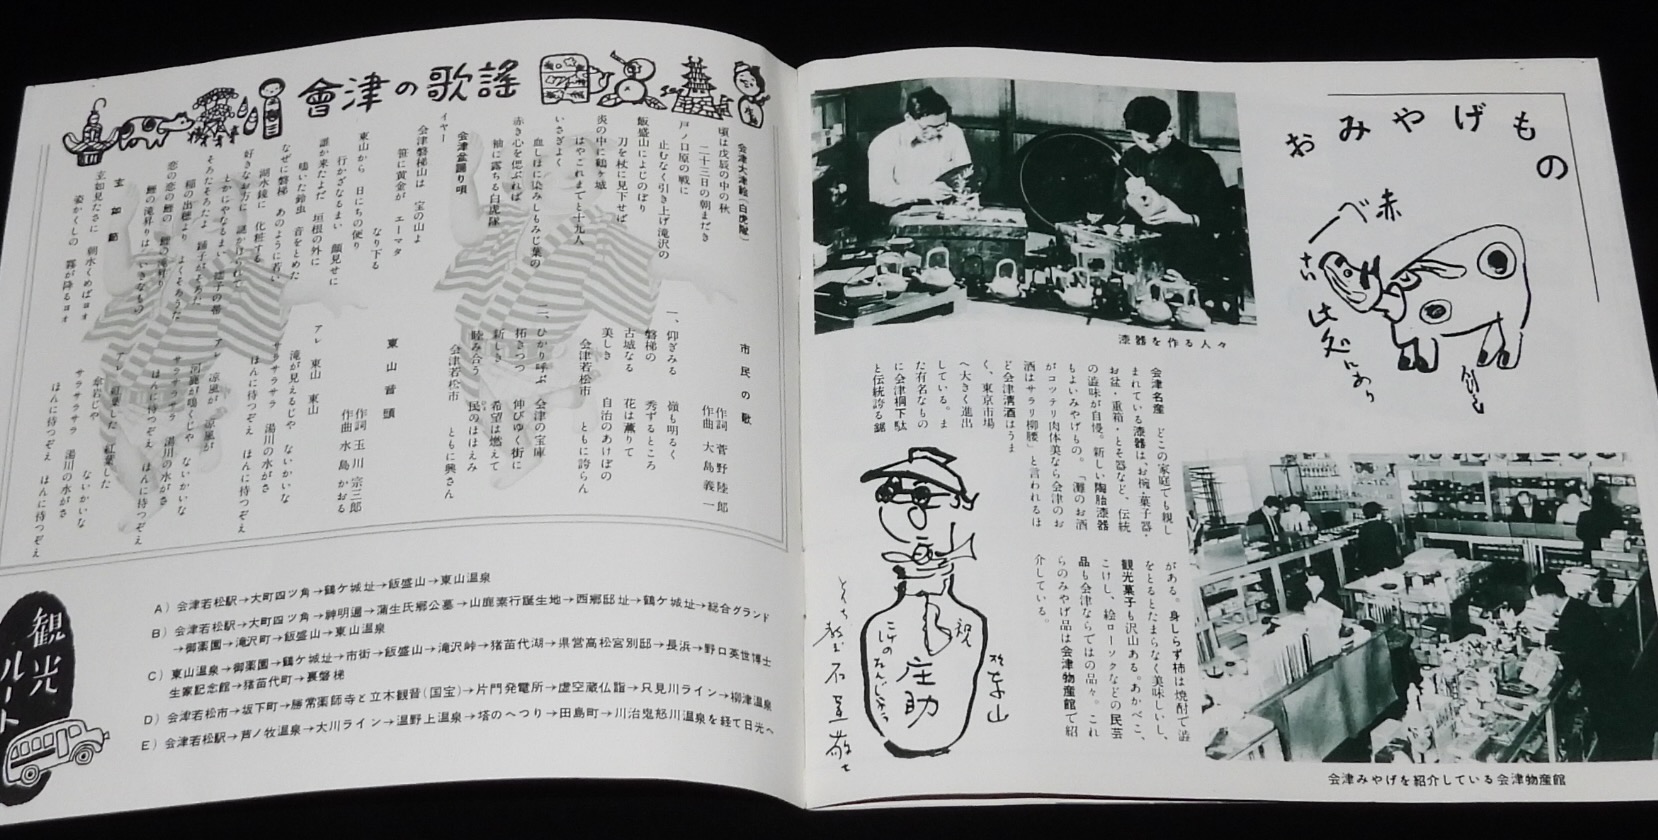 會津の歌謡
会津大津絵(白虎隊)
頃は戊辰の中の秋
二十三日の朝まだき
戸ノ口原の戦に
止むなく引き上げ滝沢の
飯盛山によじのぼり
刀を杖に見下せば
炎の中に鶴ヶ城
はやこれまでと十九人
いさぎよく
血しほに染みしもみじ葉の
赤き心を偲ぶれば
袖に露ちる白虎隊
会津盆踊り唄
イヤー
会津磐梯山は 宝の山よ
笹に黄金が エーマタ
なり下る
東山から 日にちの便り
行かざなるまい 顔見せに
誰か来たよだ 垣根の外に
鳴いた鈴虫 音をとめた
なぜに磐梯 あのように若い
湖水鏡に 化粧する
好きなお方に 謎かけられて
とかにやなるまい 繻子の帯
そろたそろたよ 踊子がそろた
稲の出穂より よくそろうた
恋の恋の鯉の 鯉の滝昇り
鯉の滝昇りは いきなもの
玄如節
玄如見たさに 朝水くめばヨオ
姿かくしの 霧が降るヨオ
市民の歌
作詞 菅野陸郎
作曲 大島義一
一、仰ぎみる 嶺も明るく
磐梯の 秀ずるところ
古城なる 花は薫りて
美しき 自治のあけぼの
会津若松市 ともに誇らん
二、ひかり呼ぶ 会津の宝庫
拓きつつ 伸びゆく街に
新しき 希望は燃えて
睦み合う 民のほほえみ
会津若松市 ともに興さん
東山音頭
作詞 玉川宗三郎
作曲 水島かおる
アレ 東山 東山
滝が見えるじや ないかいな
サラサラサラ 湯川の水がさ
ほんに待つぞえ ほんに待つぞえ
アレ 涼風が 涼風が
河鹿が鳴くじや ないかいな
サラサラサラ 湯川の水がさ
ほんに待つぞえ ほんに待つぞえ
アレ 紅葉した 紅葉した
傘岩じや ないかいな
サラサラサラ 湯川の水がさ
ほんに待つぞえ ほんに待つぞえ
観光ルート
A) 会津若松駅→大町四ツ角→鶴ケ城址→飯盛山→東山温泉
B) 会津若松駅→大町四ツ角→神明通→蒲生氏郷公墓→山鹿素行誕生地→西郷邸址→鶴ケ城址→総合グランド
→御薬園→滝沢町→飯盛山→東山温泉
C) 東山温泉→御薬園→鶴ケ城址→市街→飯盛山→滝沢峠→猪苗代湖→県営高松宮別邸→長浜→野口英世博士
生家記念館→猪苗代町→裏磐梯
D) 会津若松市→坂下町→勝常薬師寺と立木観音(国宝)→片門発電所→虚空蔵仏詣→只見川ライン→柳津温泉
E) 会津若松駅→芦ノ牧温泉→大川ライン→湯野上温泉→塔のへつり→田島町→川治鬼怒川温泉を経て日光へ
おみやげもの
赤べー
漆器を作る人々
会津名産 どこの家庭でも親し
まれている漆器は、お椀・菓子器・
お盆・重箱・とそ器など、伝統
の滋味が自慢。新しい陶胎漆器
もよいみやげもの。「灘のお酒
がコッテリ肉体美なら会津のお
酒はサラリ柳腰」と言われるほ
ど会津清酒はうま
く、東京市場
へ大きく進出
している。ま
た有名なもの
に会津桐下駄
と伝統誇る鋸
がある。身しらず柿は焼酎で澁
をとるとたまらなく美味しいし、
観光菓子も沢山ある。あかべこ、
こけし、絵ローソクなどの民芸
品も会津ならではの品々。これ
らのみやげ品は会津物産館で紹
介している。
祝
庄助
会津みやげを紹介している会津物産館